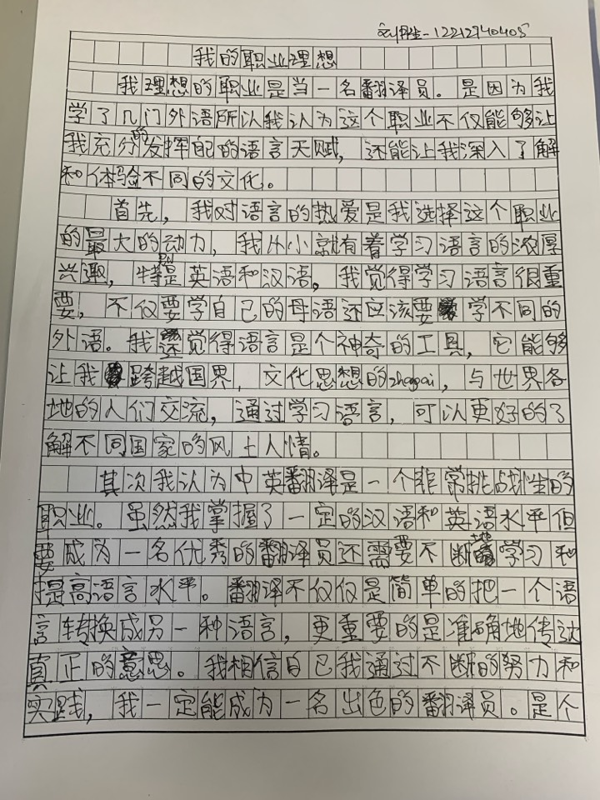 12212740405
我的职业理想
我理想的职业是当一名翻译员。是因为我
学了几门外语所以我认为这个职业不仅能够让
我充分的发挥自己的语言天赋，还能让我深入了解
和体验不同的文化。
首先，我对语言的热爱是我选择这个职业
的最大的动力，我从小就有着学习语言的浓厚
兴趣，特别是英语和汉语，我觉得学习语言很重
要，不仅要学自己的母语还应该要学不同的
外语。我还觉得语言是个神奇的工具，它能够
让我跨越国界，文化思想的zhagai，与世界各
地的人们交流，通过学习语言，可以更好的了
解不同国家的风土人情。
其次我认为中英翻译是一个非常挑战性的
职业。虽然我掌握了一定的汉语和英语水平但
要成为一名优秀的翻译员还需要不断地学习和
提高语言水平。翻译不仅仅是简单的把一个语
言转换成另一种语言，更重要的是准确地传达
真正的意思。我相信自己我通过不断的努力和
实践，我一定能成为一名出色的翻译员。是个